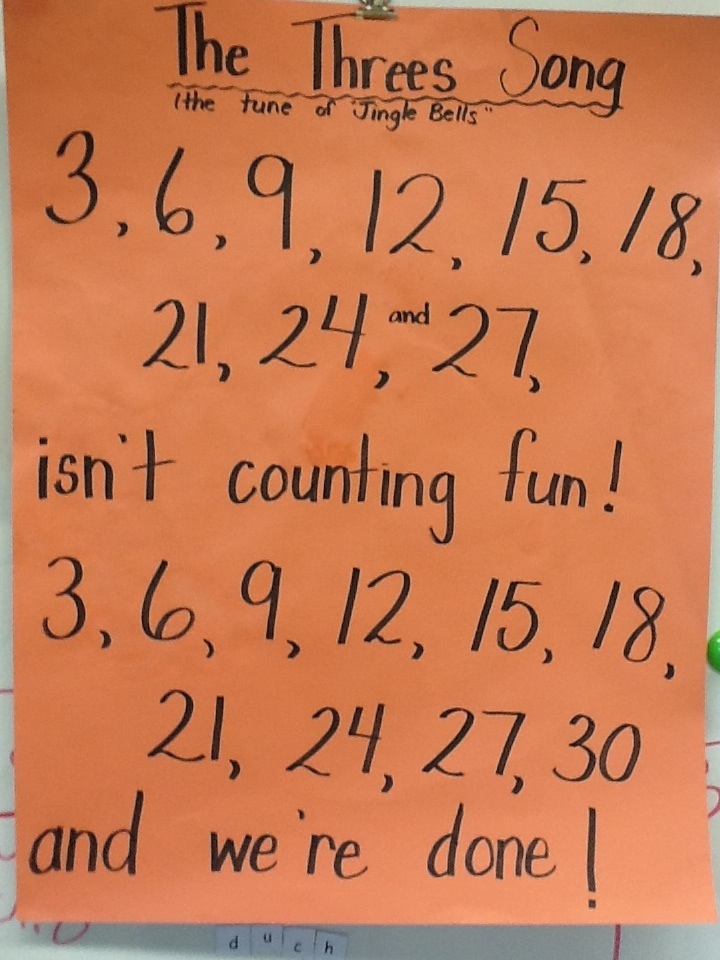 The Threes Song
(the tune of "Jingle Bells"
3, 6, 9, 12, 15, 18,
21, 24, and 27,
isn't counting fun!
3, 6, 9, 12, 15, 18,
21, 24, 27, 30
and we're done!
d u c h